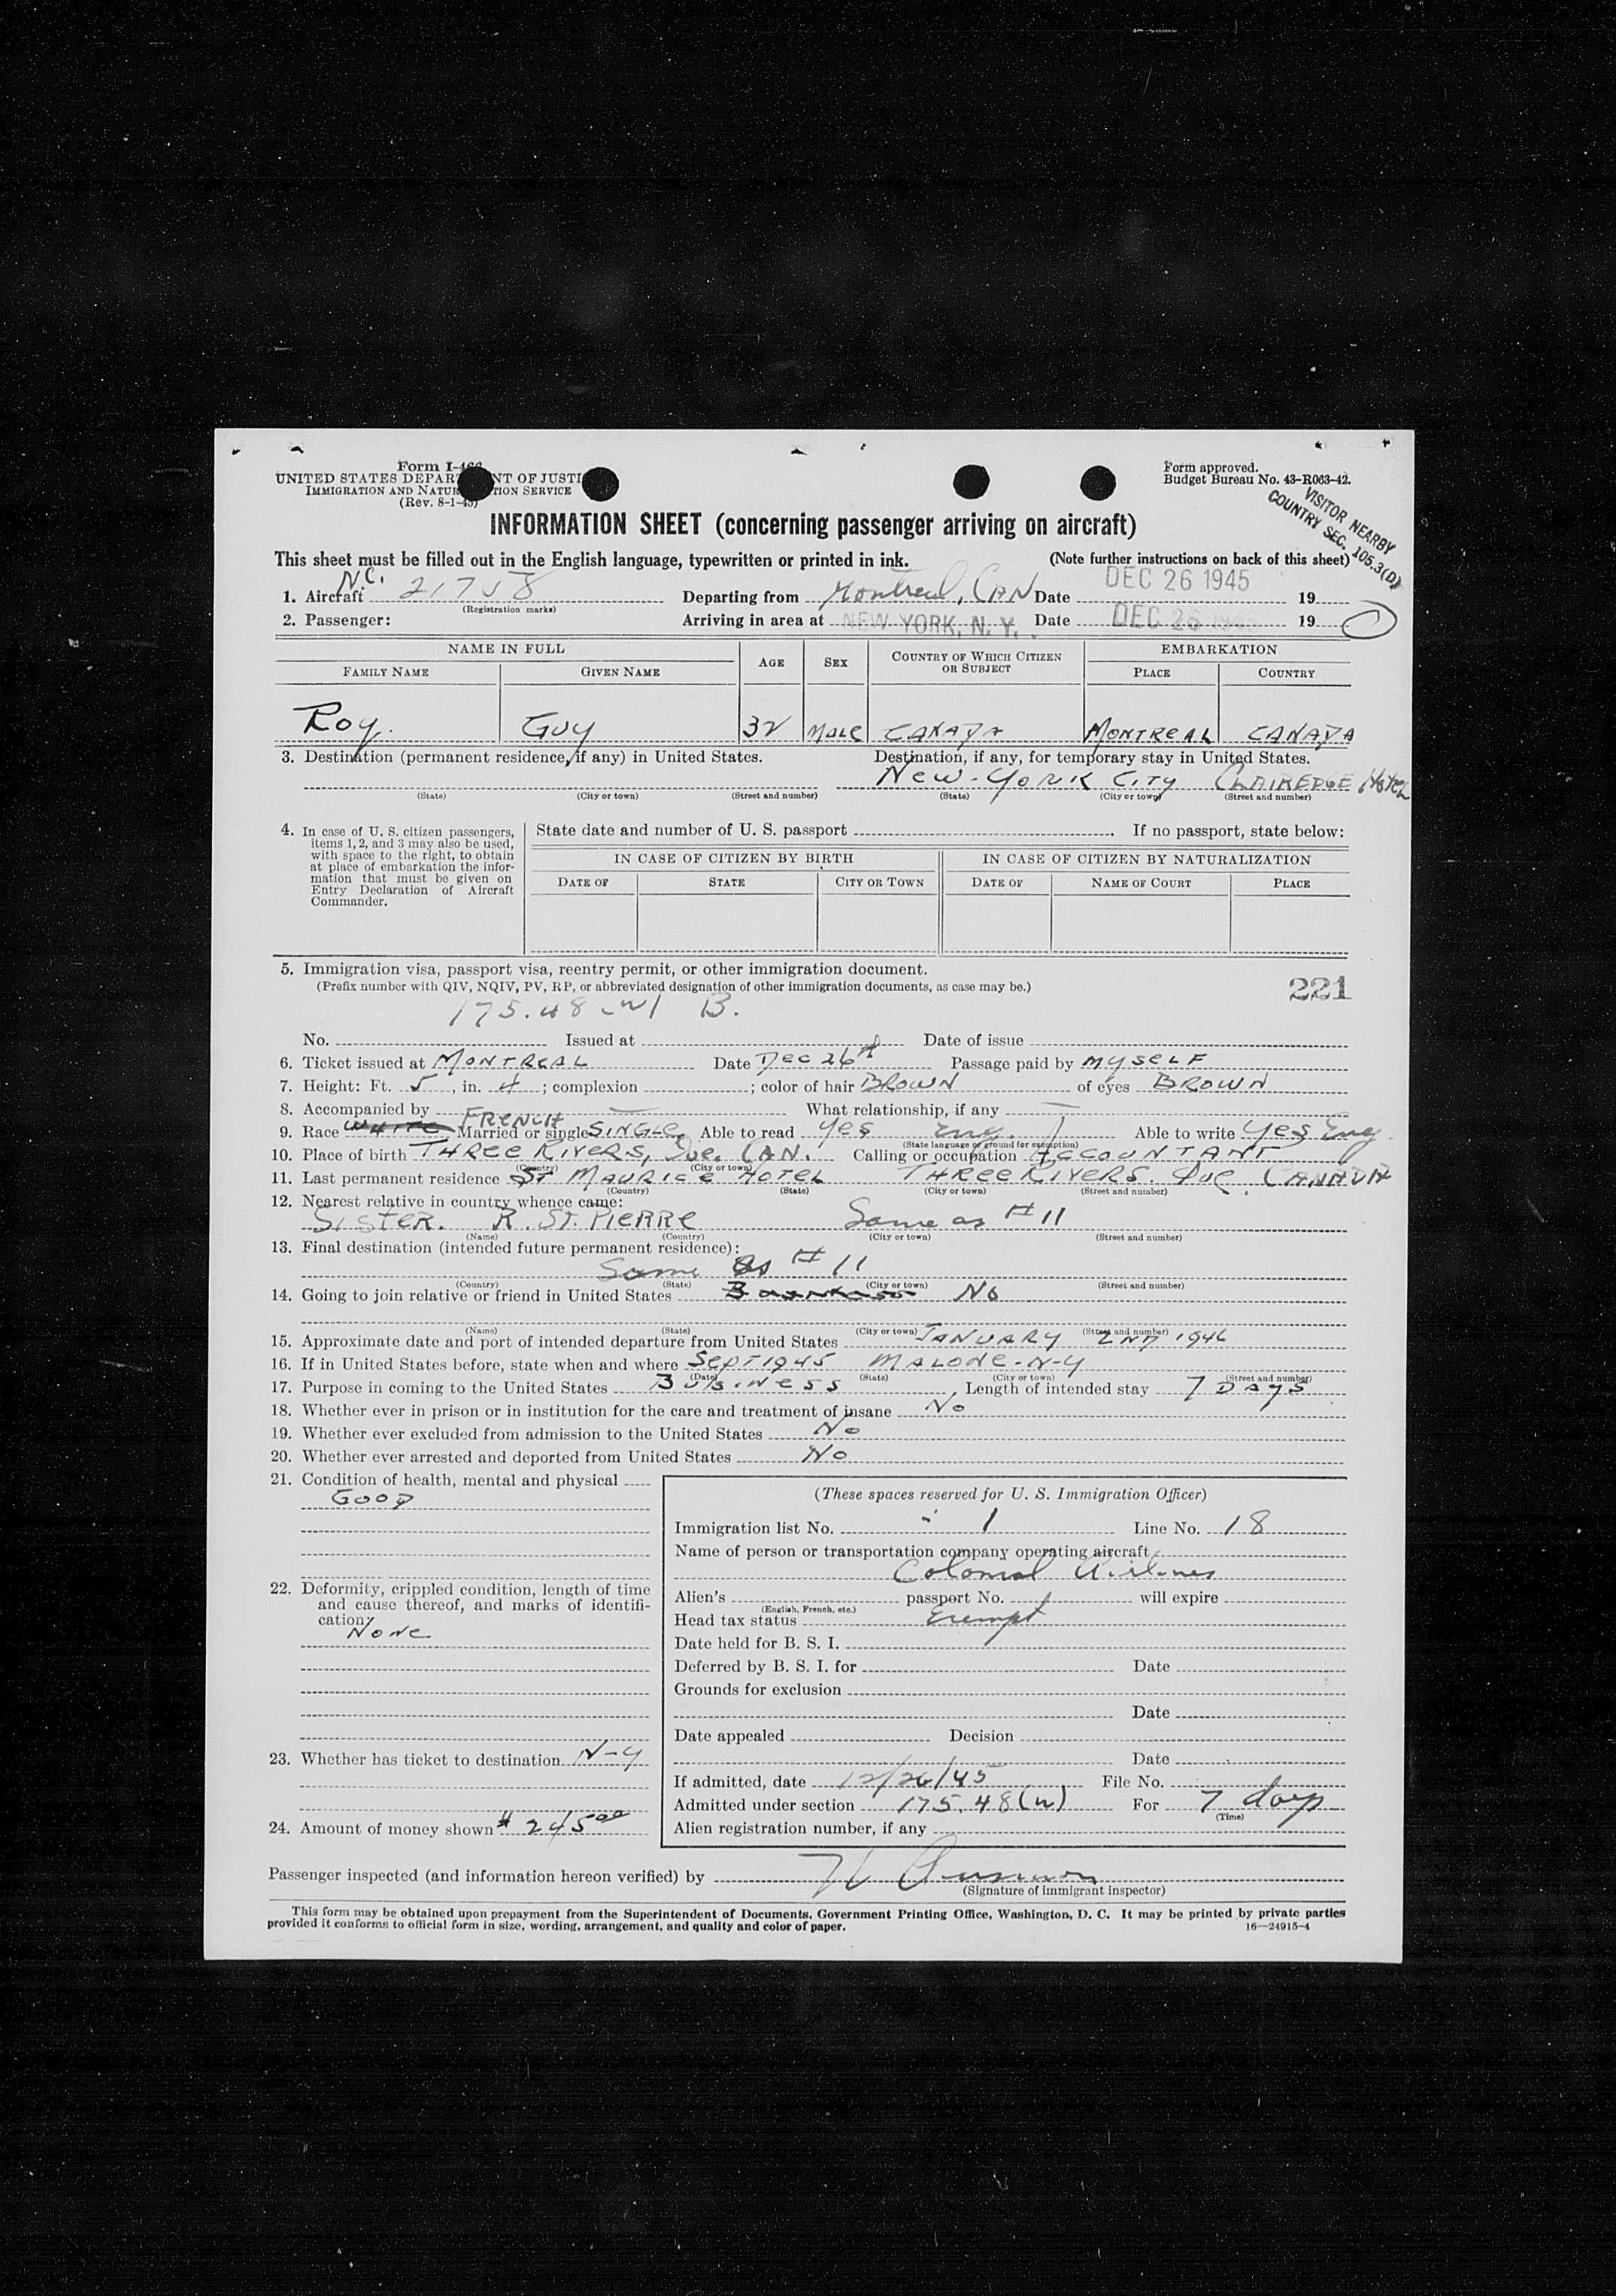 Form I-466
UNITED STATES DEPARTMENT OF JUSTI
IMMIGRATION AND NATURALIZATION SERVICE
(Rev. 8-1-45)
Form approved.
Budget Bureau No. 43-R063-42.
VISITOR NEARBY
COUNTRY SEC. 105.3(D)
INFORMATION SHEET (concerning passenger arriving on aircraft)
This sheet must be filled out in the English language, typewritten or printed in ink. (Note further instructions on back of this sheet)
1. Aircraft N.C. 21758 Departing from Montreal, CAN Date DEC 26 1945 19
(Registration marks)
2. Passenger: Arriving in area at NEW YORK, N. Y. Date DEC 26 1945 19
NAME IN FULL AGE SEX COUNTRY OF WHICH CITIZEN OR SUBJECT EMBARKATION
FAMILY NAME GIVEN NAME PLACE COUNTRY
Roy. GUY 32 MALE CANADA MONTREAL CANADA
3. Destination (permanent residence, if any) in United States. Destination, if any, for temporary stay in United States.
NEW-YORK CITY CLAIREDGE HOTEL
(State) (City or town) (Street and number) (State) (City or town) (Street and number)
4. In case of U. S. citizen passengers, items 1, 2, and 3 may also be used, with space to the right, to obtain at place of embarkation the information that must be given on Entry Declaration of Aircraft Commander.
State date and number of U. S. passport If no passport, state below:
IN CASE OF CITIZEN BY BIRTH IN CASE OF CITIZEN BY NATURALIZATION
DATE OF STATE CITY OR TOWN DATE OF NAME OF COURT PLACE
5. Immigration visa, passport visa, reentry permit, or other immigration document.
(Prefix number with QIV, NQIV, PV, RP, or abbreviated designation of other immigration documents, as case may be.)
221
175.48 B.
No. Issued at Date of issue
6. Ticket issued at MONTREAL Date Dec 26th Passage paid by myself
7. Height: Ft. 5, in. 4; complexion ; color of hair BROWN of eyes BROWN
8. Accompanied by What relationship, if any
9. Race WHITE FRENCH Married or single SINGLE Able to read Yes Eng. Able to write Yes Eng
(State language or ground for exemption)
10. Place of birth THREE RIVERS, Que. CAN. Calling or occupation ACCOUNTANT
(Country) (City or town)
11. Last permanent residence ST MAURICE HOTEL THREE RIVERS. Que. CANADA
(Country) (State) (City or town) (Street and number)
12. Nearest relative in country whence came:
SISTER. R. ST. PIERRE Same as #11
(Name) (Country) (City or town) (Street and number)
13. Final destination (intended future permanent residence):
Same as #11
(Country) (State) (City or town) (Street and number)
14. Going to join relative or friend in United States No
(Name) (State) (City or town) (Street and number)
15. Approximate date and port of intended departure from United States JANUARY 2ND 1946
16. If in United States before, state when and where SEPT 1945 MALONE-N-Y
(Date) (State) (City or town) (Street and number)
17. Purpose in coming to the United States Business, Length of intended stay 7 DAYS
18. Whether ever in prison or in institution for the care and treatment of insane No
19. Whether ever excluded from admission to the United States No
20. Whether ever arrested and deported from United States No
21. Condition of health, mental and physical
GOOD
22. Deformity, crippled condition, length of time and cause thereof, and marks of identification
NONE
23. Whether has ticket to destination N-Y
24. Amount of money shown $ 245 00
(These spaces reserved for U. S. Immigration Officer)
Immigration list No. 1 Line No. 18
Name of person or transportation company operating aircraft
Colonial Airlines
Alien's passport No. will expire
(English, French, etc.)
Head tax status Exempt
Date held for B. S. I.
Deferred by B. S. I. for Date
Grounds for exclusion
Date
Date appealed Decision
Date
If admitted, date 12/26/45 File No.
Admitted under section 175.48(w) For 7 days
(Time)
Alien registration number, if any
Passenger inspected (and information hereon verified) by
(Signature of immigrant inspector)
This form may be obtained upon prepayment from the Superintendent of Documents, Government Printing Office, Washington, D. C. It may be printed by private parties
provided it conforms to official form in size, wording, arrangement, and quality and color of paper. 16—24915-4